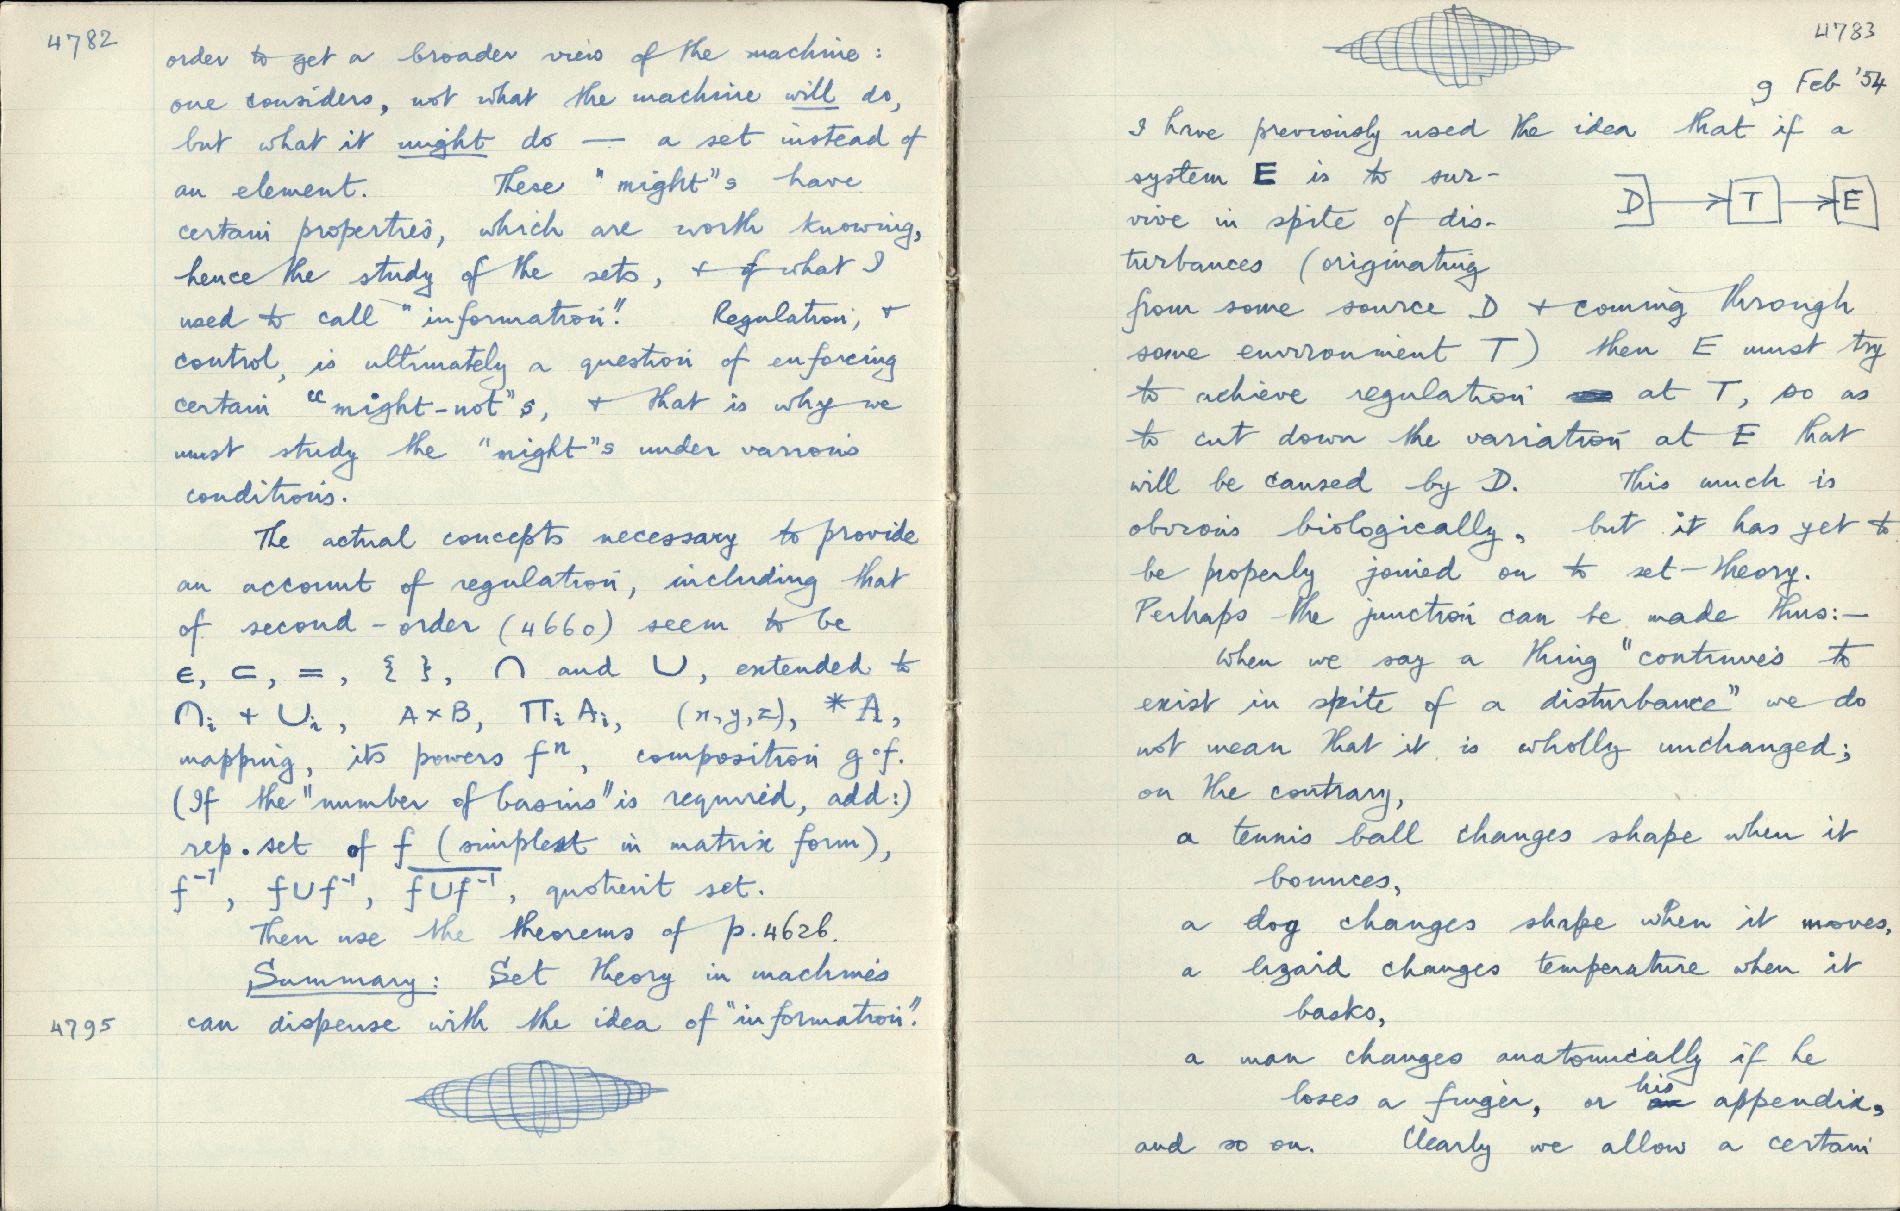 4782
order to get a broader view of the machine:
one considers, not what the machine will do,
but what it might do — a set instead of
an element. These "might"s have
certain properties, which are worth knowing,
hence the study of the sets, + of what I
used to call "information". Regulation, +
control, is ultimately a question of enforcing
certain "might-not"s, + that is why we
must study the "might"s under various
conditions.
The actual concepts necessary to provide
an account of regulation, including that
of second-order (4660) seem to be
∈, ⊂, =, { }, ∩ and ∪, extended to
∩i + ∪i, A×B, ΠiAi, (x,y,z), *A,
mapping, its powers fⁿ, composition g∘f.
(If the "number of basins" is required, add:)
rep. set of f (simplest in matrix form),
f⁻¹, f∪f⁻¹, f∪f⁻¹, quotient set.
Then use the theorems of p.4626.
Summary: Set theory in machines
4795
can dispense with the idea of "information".
4783
9 Feb '54
I have previously used the idea that if a
system E is to sur-
D T E
vive in spite of dis-
turbances (originating
from some source D + coming through
some environment T) then E must try
to achieve regulation at T, so as
to cut down the variation at E that
will be caused by D. This much is
obvious biologically, but it has yet to
be properly joined on to set-theory.
Perhaps the junction can be made thus:—
When we say a thing "continues to
exist in spite of a disturbance" we do
not mean that it is wholly unchanged;
on the contrary,
a tennis ball changes shape when it
bounces,
a dog changes shape when it moves,
a lizard changes temperature when it
basks,
a man changes anatomically if he
loses a finger, or his appendix,
and so on. Clearly we allow a certain